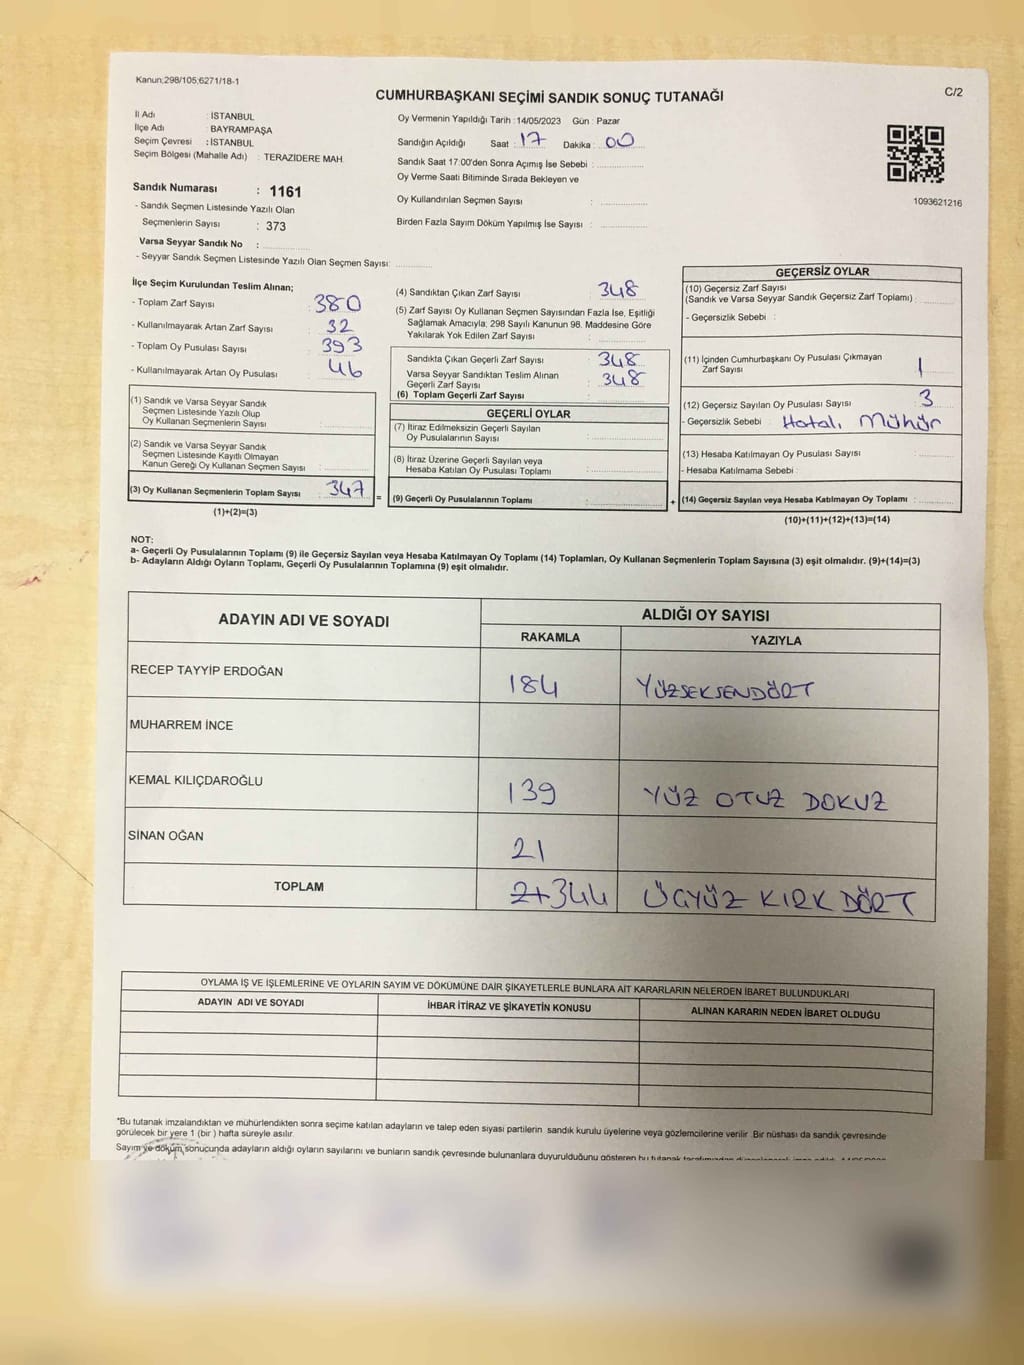 Kanun;298/105;6271/18-1
C/2
CUMHURBAŞKANI SEÇİMİ SANDIK SONUÇ TUTANAĞI
İl Adı : İSTANBUL
İlçe Adı : BAYRAMPAŞA
Seçim Çevresi : İSTANBUL
Seçim Bölgesi (Mahalle Adı) : TERAZİDERE MAH.
Sandık Numarası : 1161
- Sandık Seçmen Listesinde Yazılı Olan
Seçmenlerin Sayısı : 373
Varsa Seyyar Sandık No :
- Seyyar Sandık Seçmen Listesinde Yazılı Olan Seçmen Sayısı:
Oy Vermenin Yapıldığı Tarih : 14/05/2023 Gün : Pazar
Sandığın Açıldığı Saat : 17 Dakika : 00
Sandık Saat 17:00'den Sonra Açımış İse Sebebi :
Oy Verme Saati Bitiminde Sırada Bekleyen ve
Oy Kullandırılan Seçmen Sayısı :
Birden Fazla Sayım Döküm Yapılmış İse Sayısı :
1093621216
İlçe Seçim Kurulundan Teslim Alınan;
- Toplam Zarf Sayısı : 380
- Kullanılmayarak Artan Zarf Sayısı : 32
- Toplam Oy Pusulası Sayısı : 393
- Kullanılmayarak Artan Oy Pusulası : 46
(1) Sandık ve Varsa Seyyar Sandık
Seçmen Listesinde Yazılı Olup
Oy Kullanan Seçmenlerin Sayısı :
(2) Sandık ve Varsa Seyyar Sandık
Seçmen Listesinde Kayıtlı Olmayan
Kanun Gereği Oy Kullanan Seçmen Sayısı :
(3) Oy Kullanan Seçmenlerin Toplam Sayısı : 347 =
(1)+(2)=(3)
(4) Sandıktan Çıkan Zarf Sayısı : 348
(5) Zarf Sayısı Oy Kullanan Seçmen Sayısından Fazla İse, Eşitliği
Sağlamak Amacıyla; 298 Sayılı Kanunun 98. Maddesine Göre
Yakılarak Yok Edilen Zarf Sayısı :
Sandıkta Çıkan Geçerli Zarf Sayısı : 348
Varsa Seyyar Sandıktan Teslim Alınan
Geçerli Zarf Sayısı : 348
(6) Toplam Geçerli Zarf Sayısı :
GEÇERLİ OYLAR
(7) İtiraz Edilmeksizin Geçerli Sayılan
Oy Pusulalarının Sayısı :
(8) İtiraz Üzerine Geçerli Sayılan veya
Hesaba Katılan Oy Pusulası Toplamı :
(9) Geçerli Oy Pusulalarının Toplamı : +
GEÇERSİZ OYLAR
(10) Geçersiz Zarf Sayısı
(Sandık ve Varsa Seyyar Sandık Geçersiz Zarf Toplamı) :
- Geçersizlik Sebebi :
(11) İçinden Cumhurbaşkanı Oy Pusulası Çıkmayan
Zarf Sayısı : 1
(12) Geçersiz Sayılan Oy Pusulası Sayısı : 3
- Geçersizlik Sebebi : Hatalı Mühür
(13) Hesaba Katılmayan Oy Pusulası Sayısı :
- Hesaba Katılmama Sebebi :
(14) Geçersiz Sayılan veya Hesaba Katılmayan Oy Toplamı :
(10)+(11)+(12)+(13)=(14)
NOT:
a- Geçerli Oy Pusulalarının Toplamı (9) ile Geçersiz Sayılan veya Hesaba Katılmayan Oy Toplamı (14) Toplamları, Oy Kullanan Seçmenlerin Toplam Sayısına (3) eşit olmalıdır. (9)+(14)=(3)
b- Adayların Aldığı Oyların Toplamı, Geçerli Oy Pusulalarının Toplamına (9) eşit olmalıdır.
ADAYIN ADI VE SOYADI
ALDIĞI OY SAYISI
RAKAMLA YAZIYLA
RECEP TAYYİP ERDOĞAN 184 YÜZSEKSENDÖRT
MUHARREM İNCE
KEMAL KILIÇDAROĞLU 139 YÜZ OTUZ DOKUZ
SİNAN OĞAN 21
TOPLAM 344 ÜÇYÜZ KIRK DÖRT
OYLAMA İŞ VE İŞLEMLERİNE VE OYLARIN SAYIM VE DÖKÜMÜNE DAİR ŞİKAYETLERLE BUNLARA AİT KARARLARIN NELERDEN İBARET BULUNDUKLARI
ADAYIN ADI VE SOYADI İHBAR İTİRAZ VE ŞİKAYETİN KONUSU ALINAN KARARIN NEDEN İBARET OLDUĞU
*Bu tutanak imzalandıktan ve mühürlendikten sonra seçime katılan adayların ve talep eden siyasi partilerin sandık kurulu üyelerine veya gözlemcilerine verilir. Bir nüshası da sandık çevresinde
görülecek bir yere 1 (bir ) hafta süreyle asılır.
Sayım ve döküm sonucunda adayların aldığı oyların sayılarını ve bunların sandık çevresinde bulunanlara duyurulduğunu gösteren bu tutanak